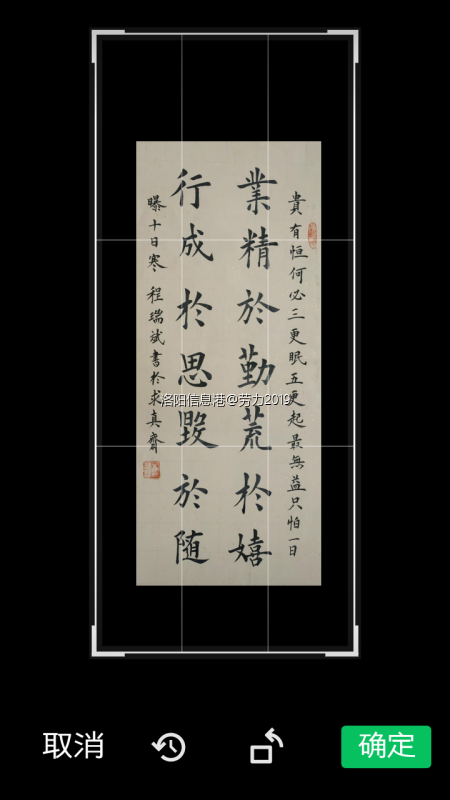 貴有恒何必三更眠五更起最無益只怕一日
業精於勤荒於嬉
行成於思毀於随
曝十日寒 程瑞斌書於求真齋
洛阳信息港@劳力2019
取消
确定